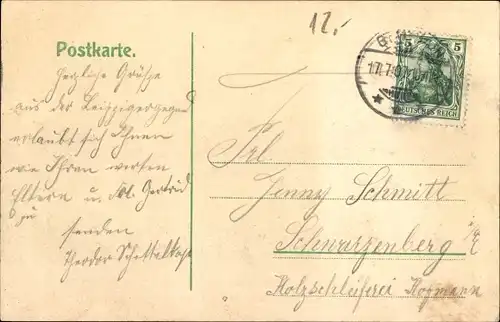 12.-
Postkarte.
Herzliche Grüße
aus der Leipzigergegend
erlaubt sich Ihnen
wie Ihren werten
Eltern u. Frl. Gertrud
zu
senden
Theodor
5
DEUTSCHES REICH
Frl.
Jenny Schmitt
Schwarzenberg i/E
Holzschleiferei